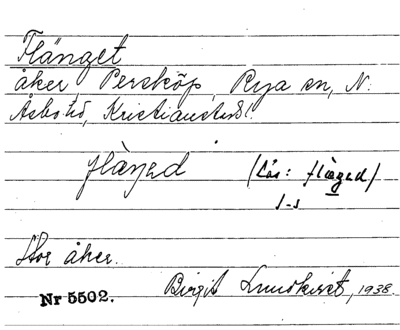 Flänget
åker Persköp, Rya sn, N.
Åsbo hd, Kristianstad l.
flàŋəd (Läs: flæŋəd)
J-s
Stor åker.
Nr 5502. Birgit Lundkvist, 1938.